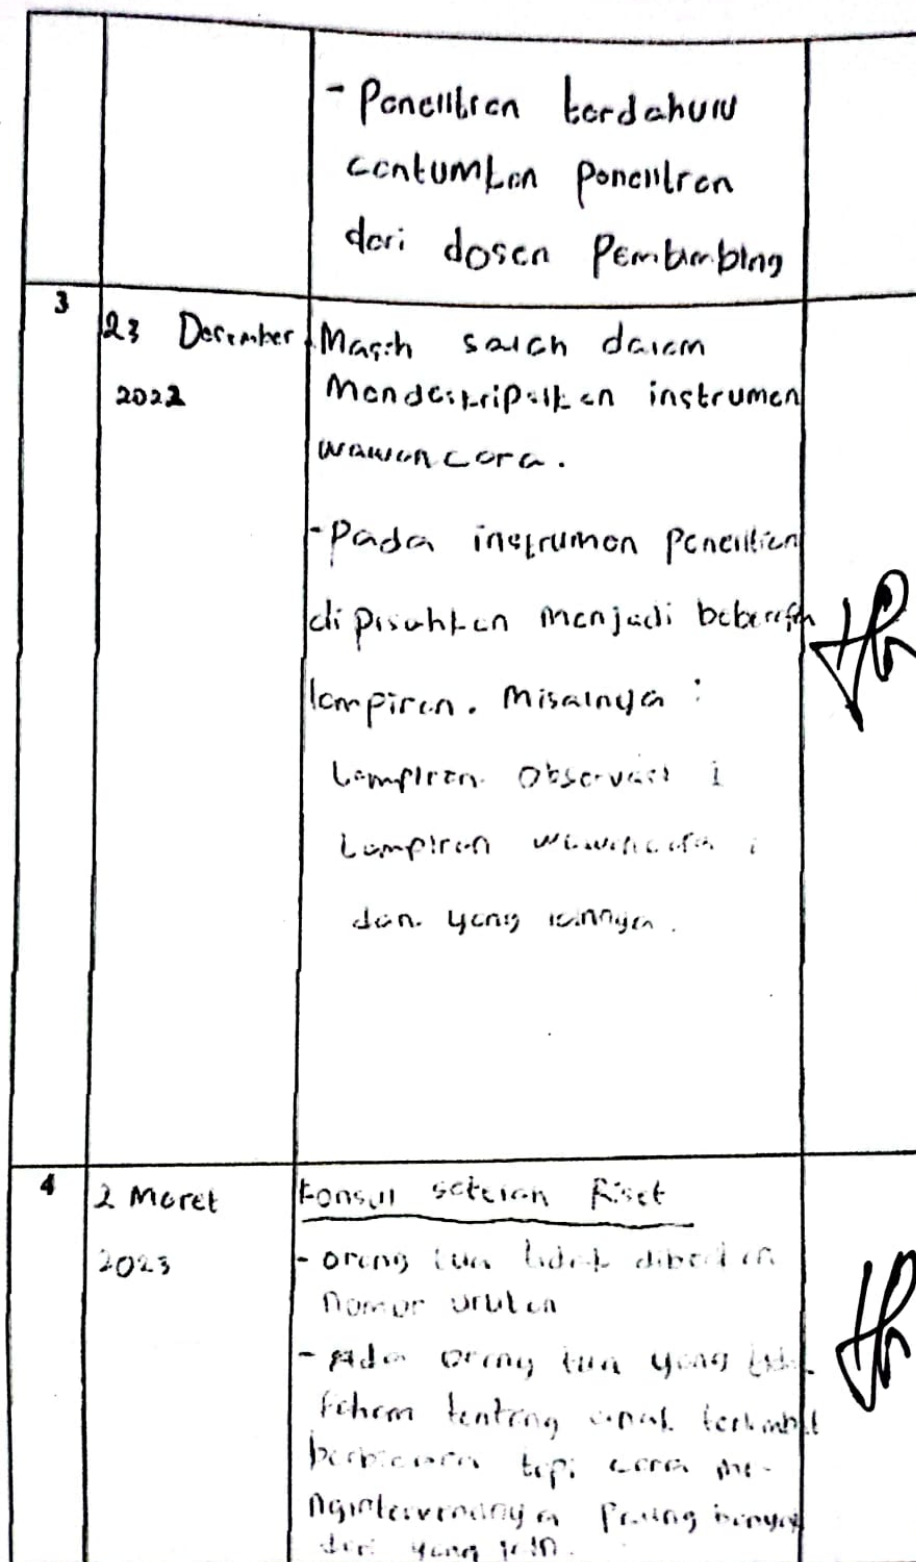 - Penelitian terdahulu
cantumkan penelitian
dari dosen Pembimbing
3
23 Desember
2022
Masih salah dalam
Mendeskripsikan instrumen
wawancara.
- Pada instrumen Penelitian
dipisahkan menjadi beberapa
lampiran. Misalnya :
Lampiran Observasi 1
Lampiran wawancara 1
dan yang lainnya.
4
2 Maret
2023
Konsul setelah Riset
- orang tua tidak
nomor urutan
- Ada orang tua yang
faham tentang anak terlambat
berbicara tapi cara me-
ngintervensinya Paling banyak
dari yang lain.